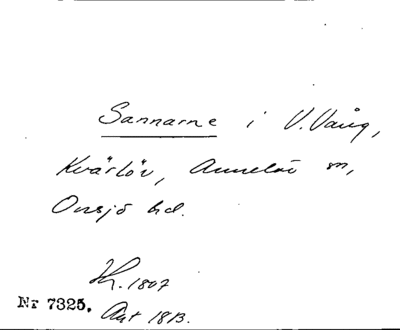 Sannarne i V. Vång,
Kvärlöv, Annelöv sn,
Onsjö hd.
H. 1807
Nr 7325.
Akt 1813.